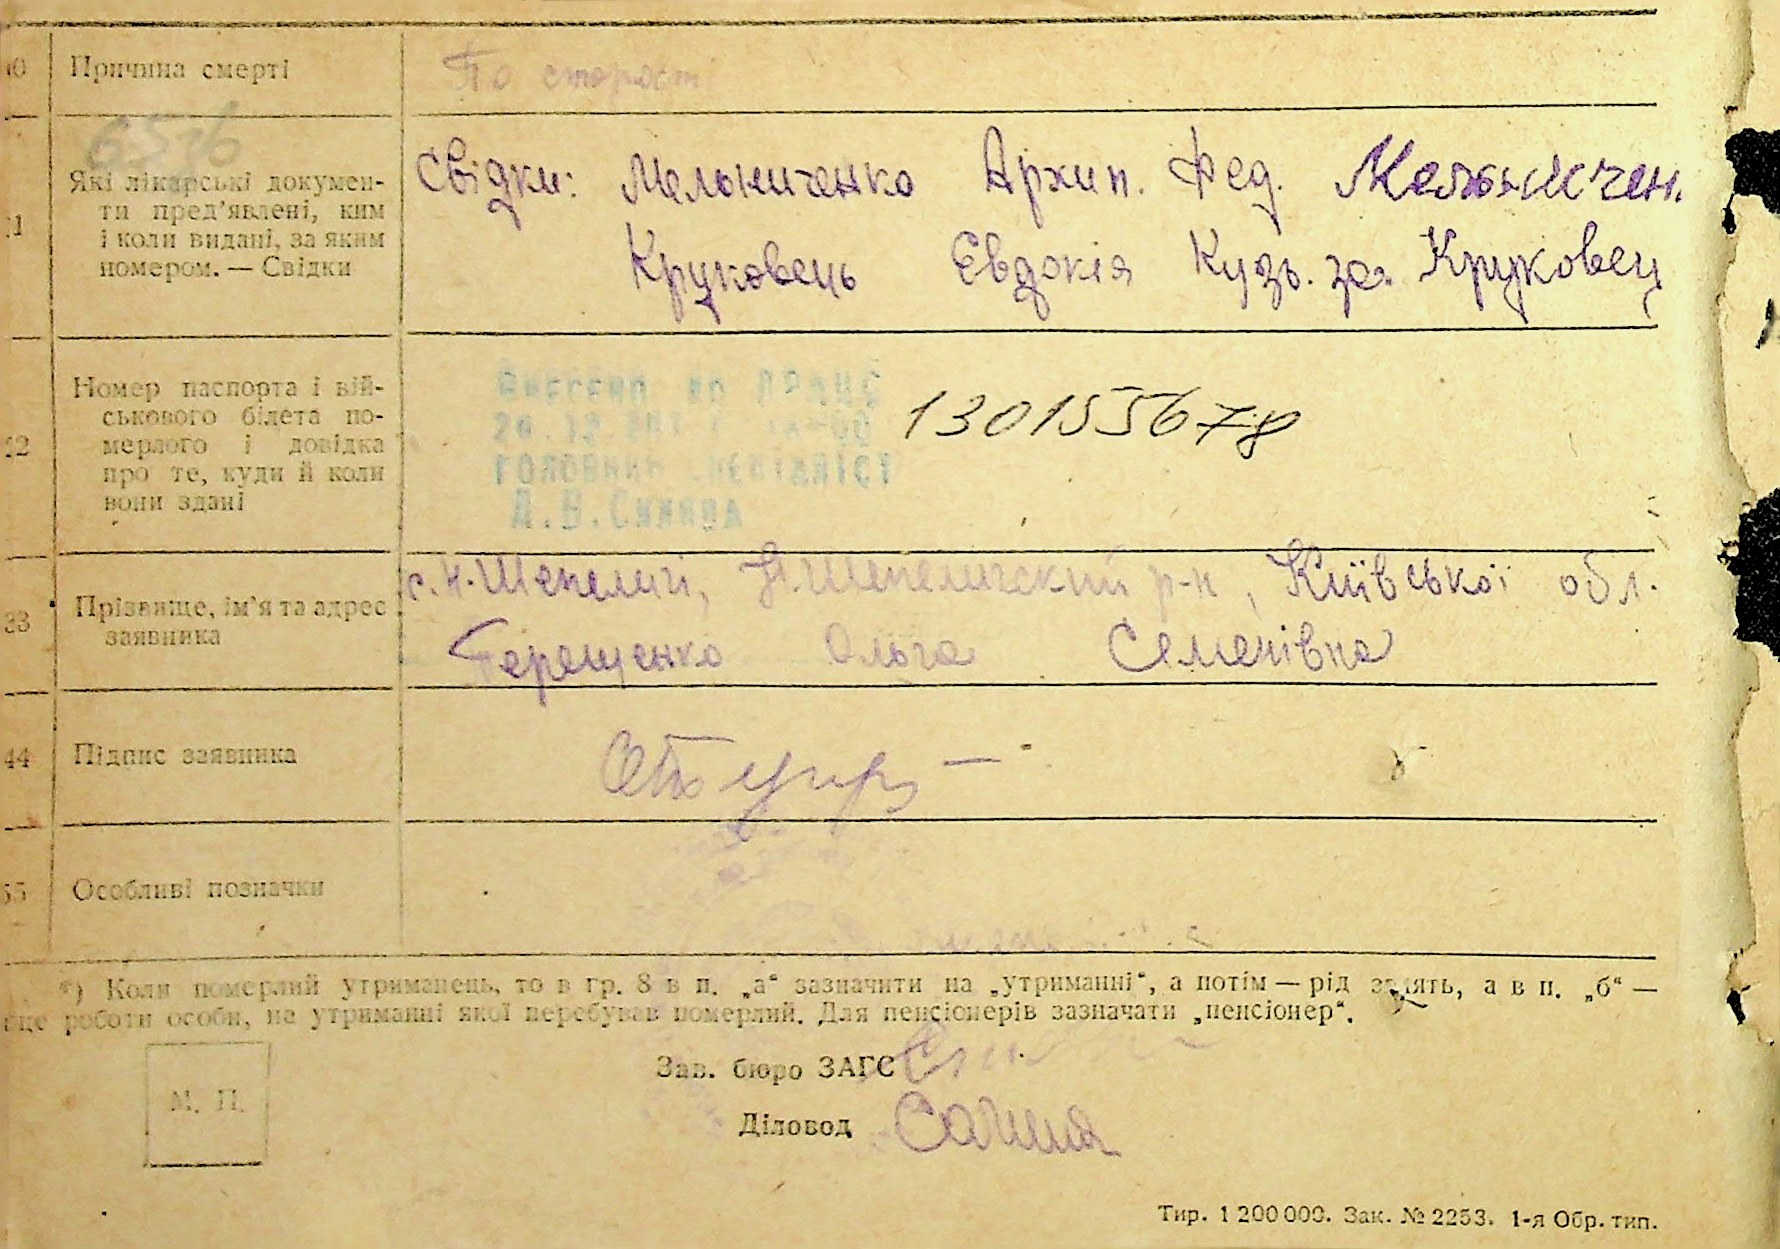 Причина смерті
По старості
6526
Які лікарські докумен-
ти пред’явлені, ким
і коли видані, за яким
номером. — Свідки
Свідки: Мельниченко Архип. Фед. Мельничен.
Круковець Євдокія Кузь. за. Круковец
Номер паспорта і вій-
ськового білета по-
мерлого і довідка
про те, куди й коли
вони здані
Внесено до ДРАЦС
головний спеціаліст
130155678
Прізвище, ім’я та адрес
заявника
с. Н. Шепеличі, Н. Шепеличский р-н, Київської обл.
Терещенко Ольга Семенівна
44
Підпис заявника
55
Особливі позначки
*) Коли померлий утриманець, то в гр. 8 в п. „а“ зазначити на „утриманні“, а потім — рід занять, а в п. „б“ —
місце роботи особи, на утриманні якої перебував померлий. Для пенсіонерів зазначати „пенсіонер“.
Зав. бюро ЗАГС
М. П.
Діловод
Тир. 1 200 000. Зак. № 2253. 1-я Обр. тип.